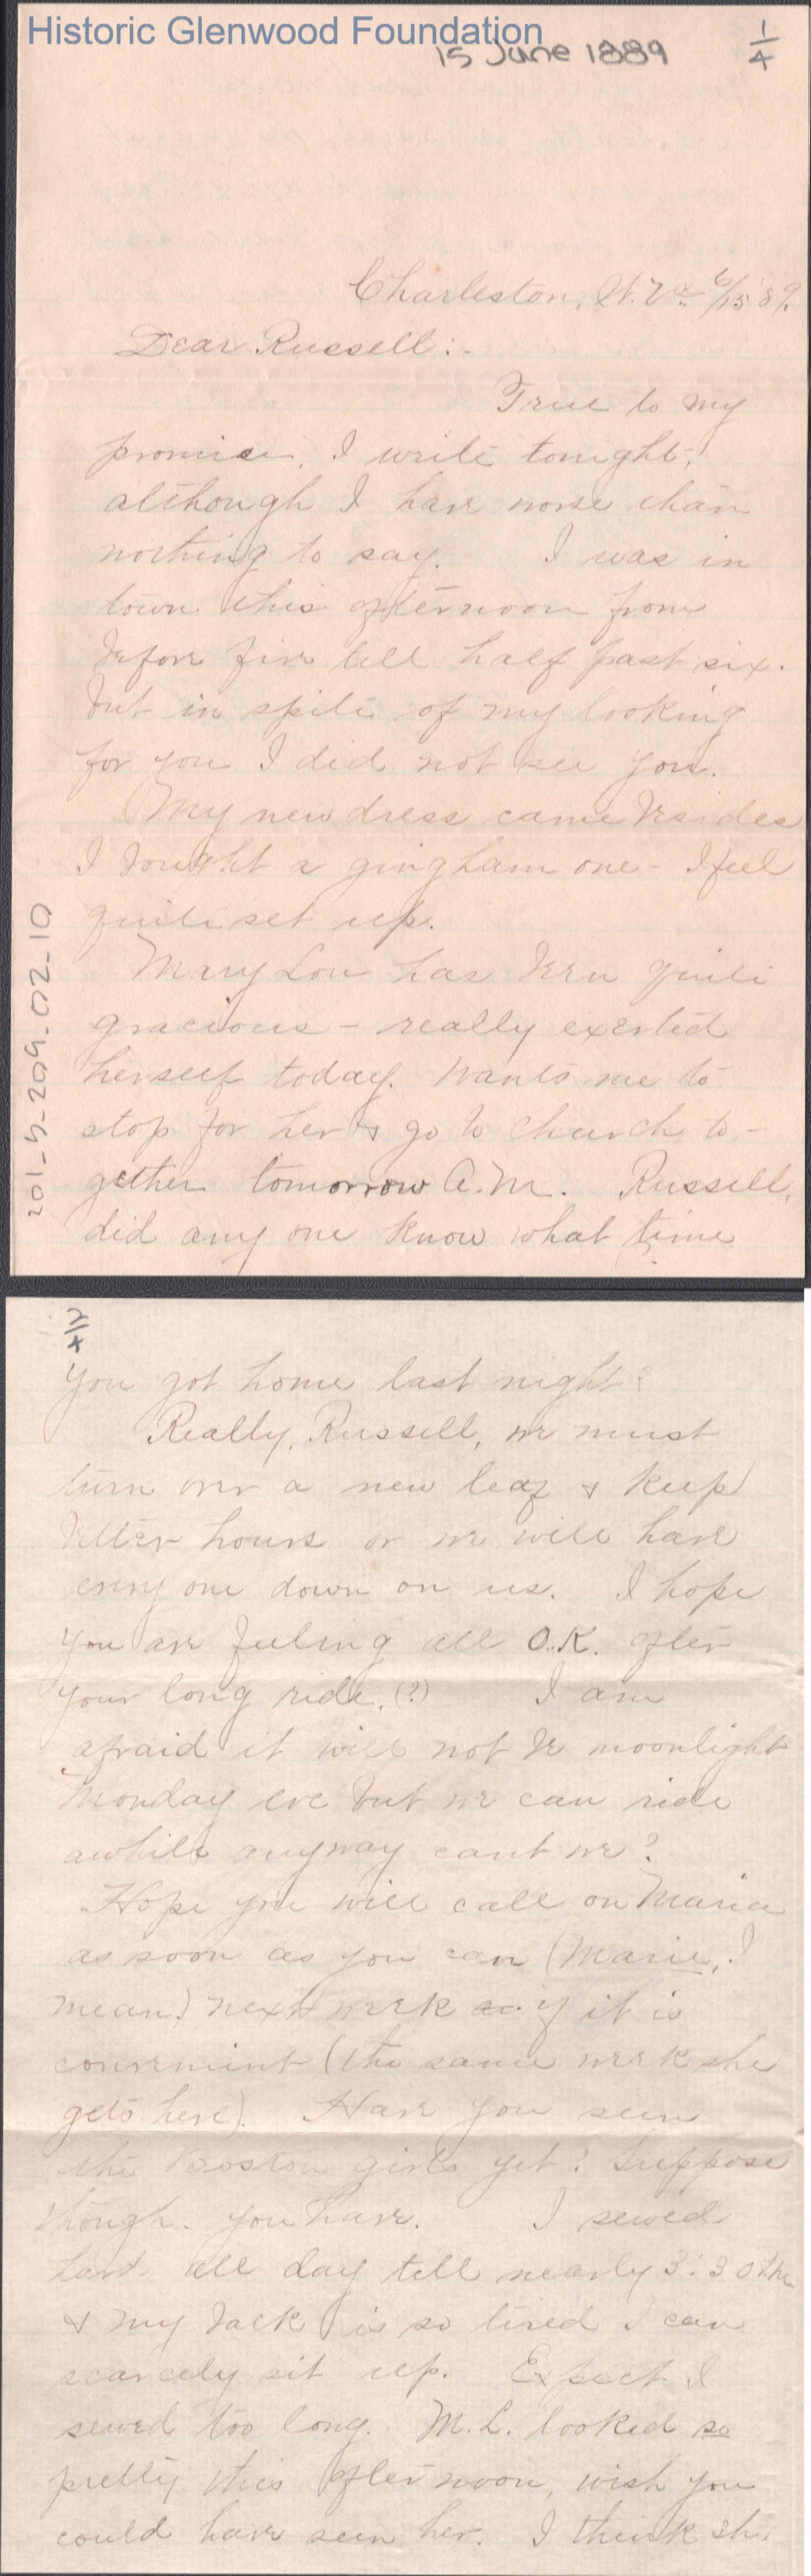 Historic Glenwood Foundation
15 June 1889
1/4
Charleston, W.Va. 6/15 '89.
Dear Russell:-
True to my
promise, I write tonight,
although I have worse than
nothing to say. I was in
town this afternoon from
before five till half past six.
but in spite of my looking
for you I did not see you.
My new dress came besides
I bought a gingham one - I feel
quite set up.
Mary Lou has been quite
gracious - really exerted
herself today. Wants me to
stop for her & go to church to-
gether tomorrow A.M. Russell,
did any one know what time
201-5-209-02-10
2/4
you got home last night?
Really, Russell, we must
turn over a new leaf & keep
better hours or we will have
every one down on us. I hope
you are feeling all O.K. after
your long ride. (?) I am
afraid it will not be moonlight
Monday eve but we can ride
awhile anyway cant we?
Hope you will call on Maria
as soon as you can (Marie, I
mean) next week if it is
convenient (the same week she
gets here). Have you seen
the Boston girls yet? Suppose
though you have. I sewed
hard all day till nearly 3:30 P.M.
& my back is so tired I can
scarcely sit up. Expect I
sewed too long. M.L. looked so
pretty this afternoon, wish you
could have seen her. I think she